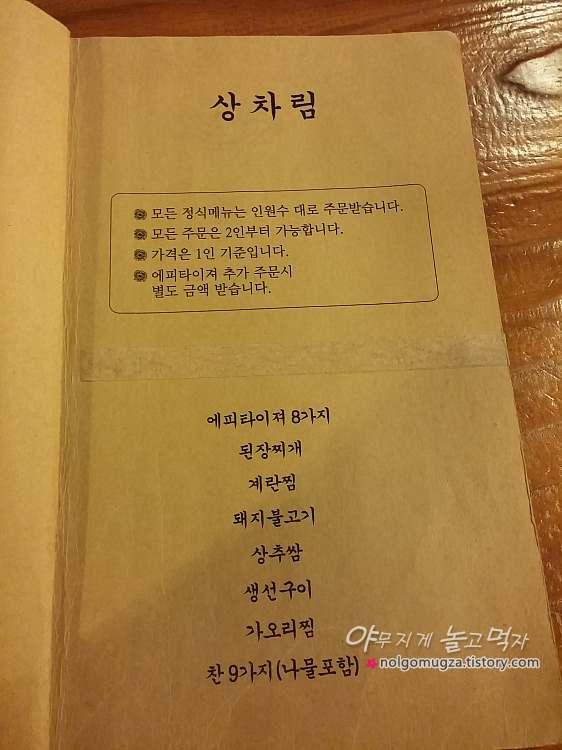 상차림
모든 정식메뉴는 인원수 대로 주문받습니다.
모든 주문은 2인부터 가능합니다.
가격은 1인 기준입니다.
에피타이져 추가 주문시
별도 금액 받습니다.
에피타이져 8가지
된장찌개
계란찜
돼지불고기
상추쌈
생선구이
가오리찜
찬 9가지(나물포함)
야무지게 놀고먹자
nolgomugza.tistory.com